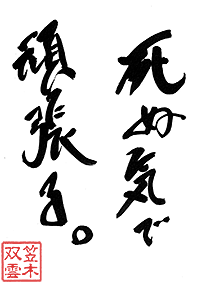 死ぬ気で
頑張る。
笠木
双雲